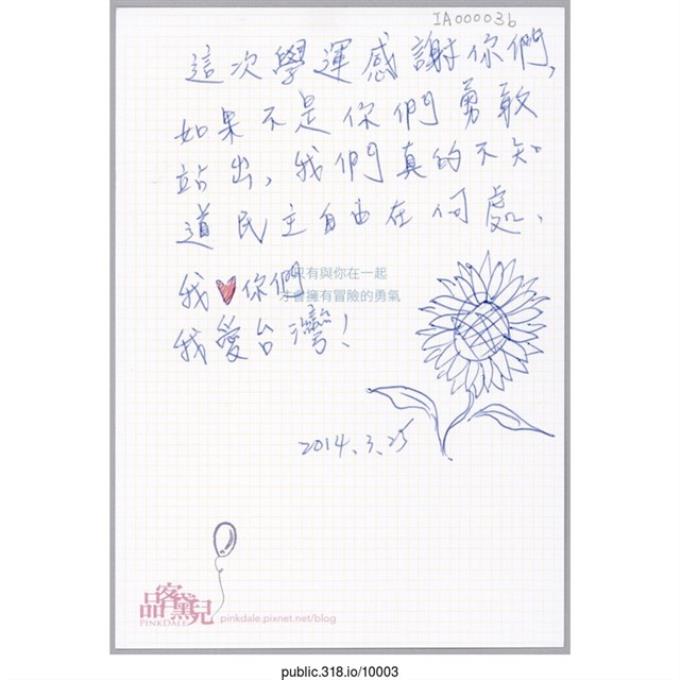 IA000036
這次學運感謝你們,
如果不是你們勇敢
站出,我們真的不知
道民主自由在何處、
我♥你們
只有與你在一起
才會擁有冒險的勇氣
我愛台灣!
2014.3.25
品客黛兒
PINKDALE
pinkdale.pixnet.net/blog
public.318.io/10003